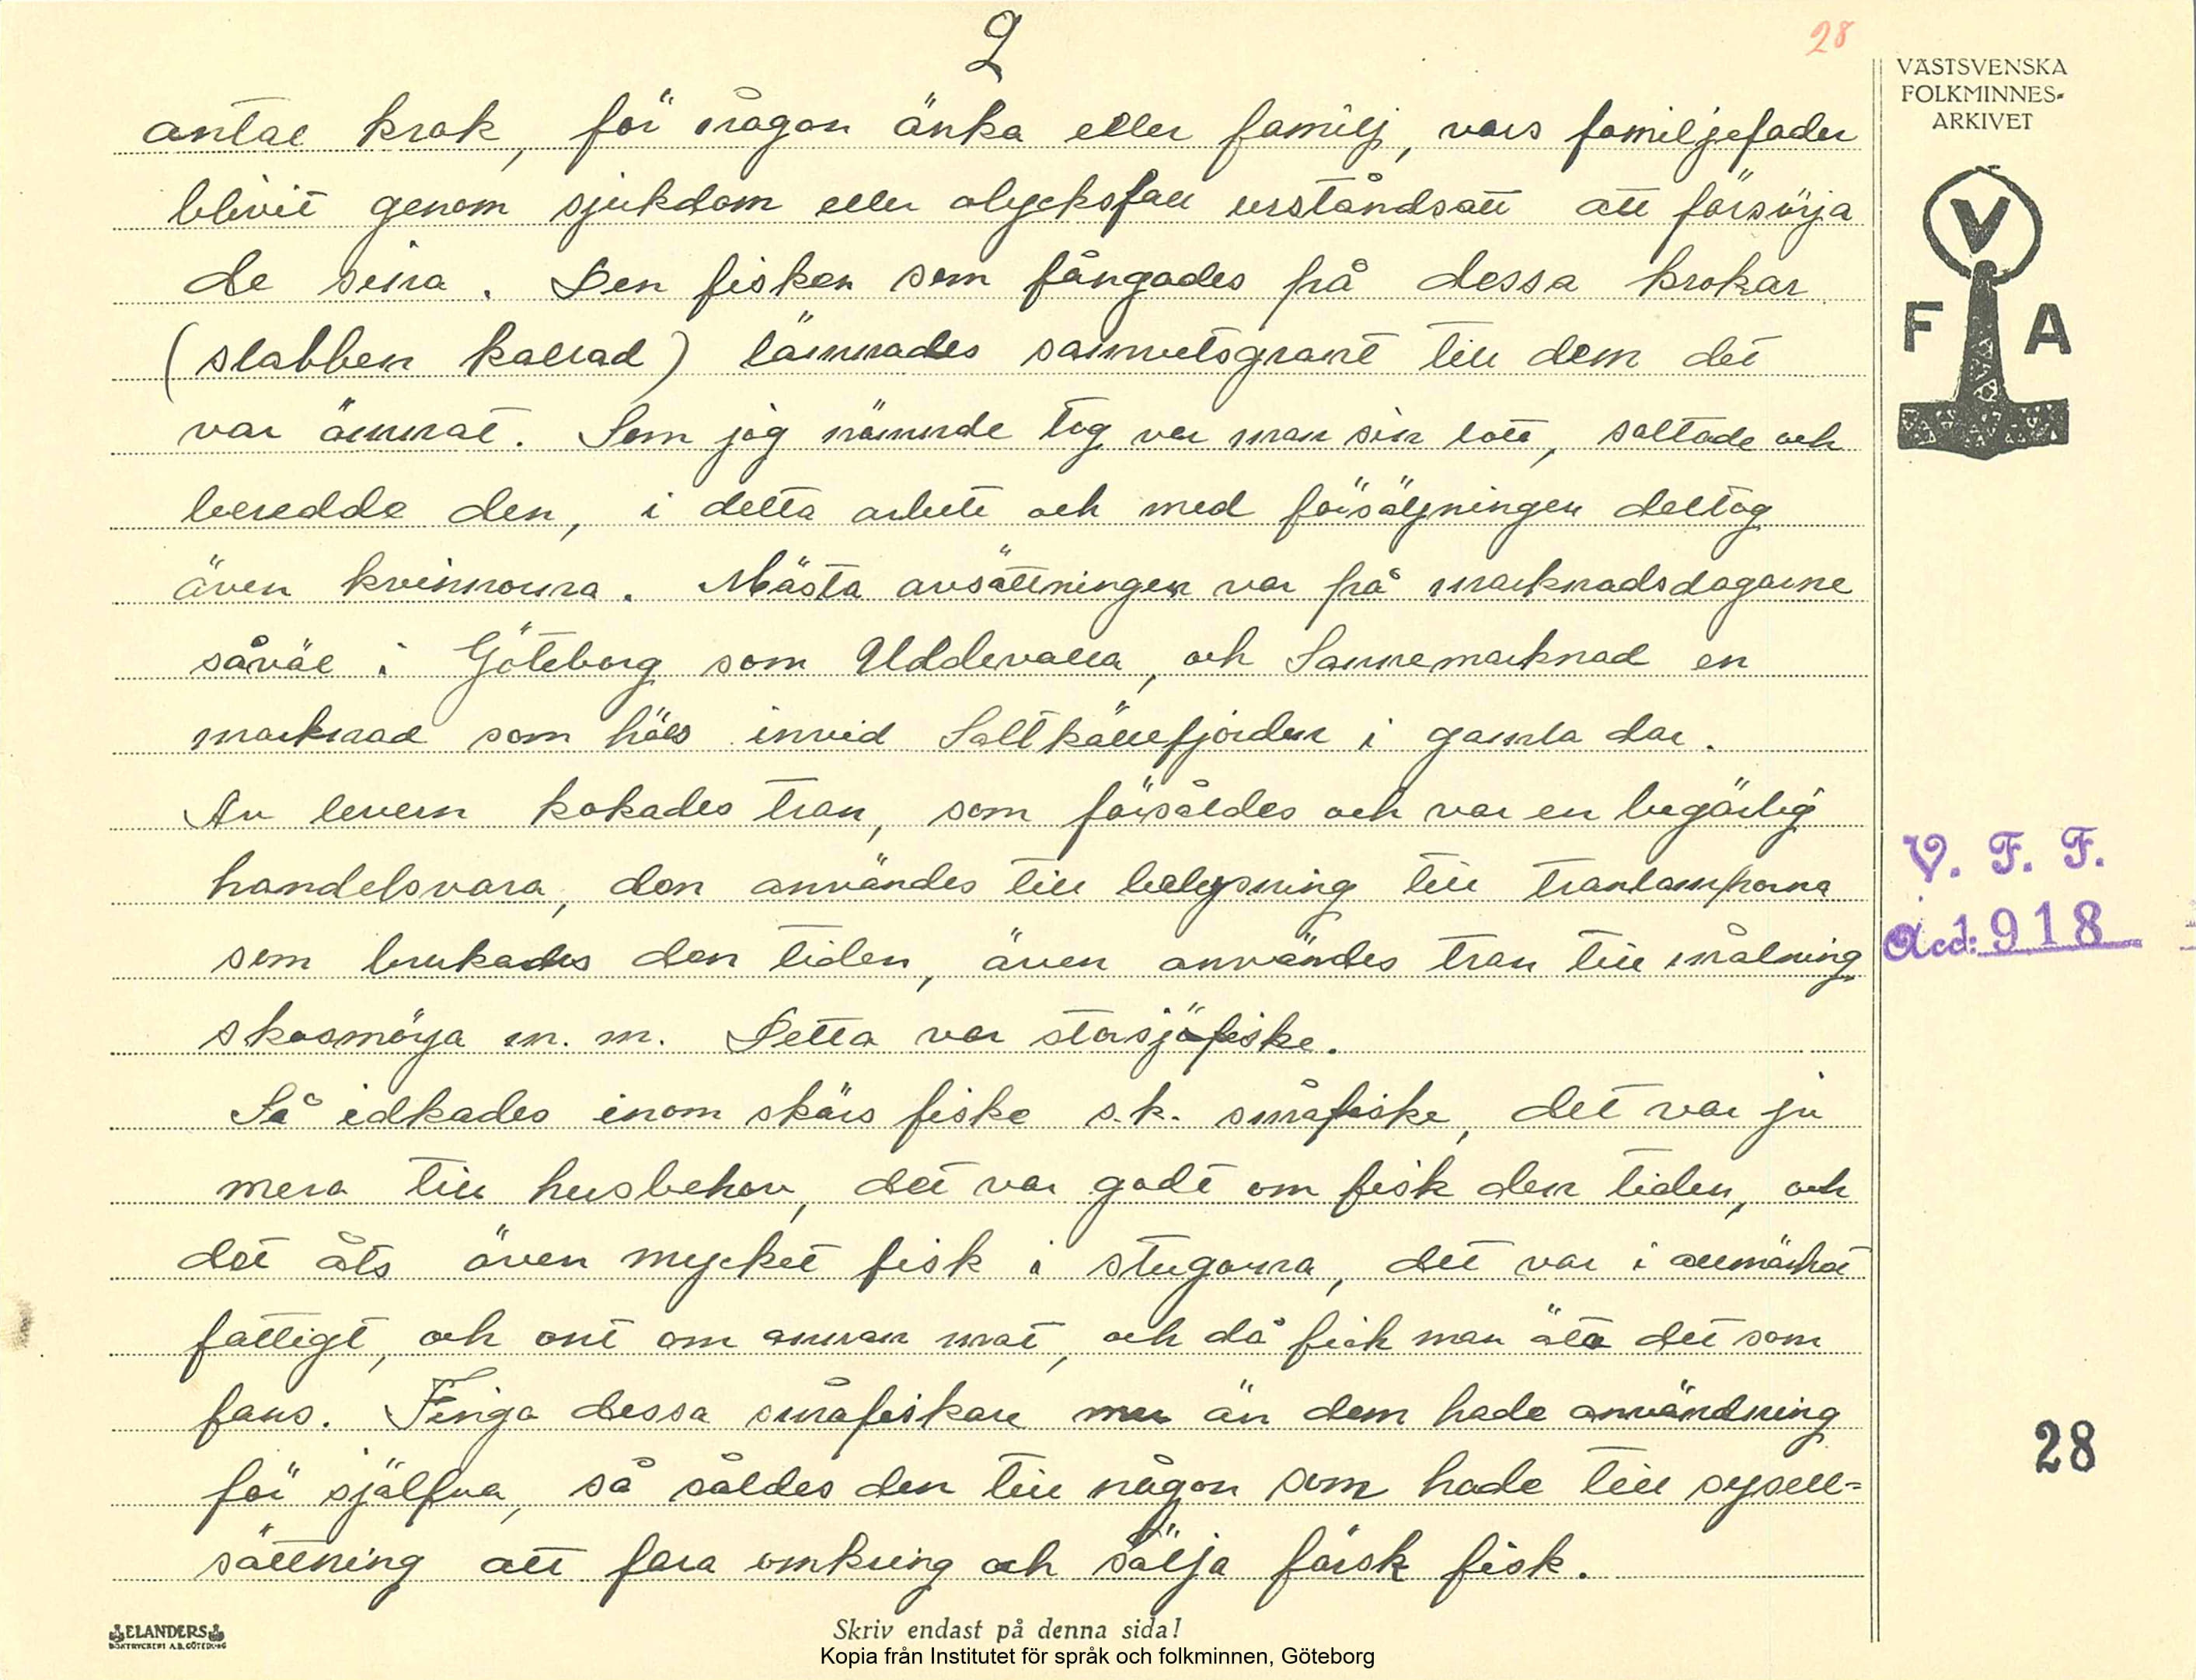 2
28
antal krok, för någon änka eller familj, vars familjefader
blivit genom sjukdom eller olycksfall urståndsatt att försörja
de sina. Den fisken som fångades på dessa krokar
(slabben kallad) lämnades samvetsgrant till dem det
var ämnat. Som jag nämnde tog var man sin lott, saltade och
beredde den, i detta arbete och med försäljningen deltog
även kvinnorna. Mästa avsättningen var på marknadsdagarne
såväl i Göteborg som Uddevalla, och Sannemarknad en
marknad som höls invid Saltkällefjorden i gamla dar.
Av levern kokades tran, som försåldes och var en begärlig
handelsvara, den användes till belysning till tranlamporna
som brukades den tiden, även användes tran till målning
skosmörja m. m. Detta var storsjöfiske.
Så idkades inom skärs fiske s.k. småfiske, det var ju
mera till husbehov, det var godt om fisk den tiden, och
det åts även mycket fisk i stugorna, det var i allmänhet
fattigt, och ont om annan mat, och då fick man äta det som
fans. Finga dessa småfiskare mer än dem hade användning
för själfva, så såldes den till någon som hade till sysell-
sättning att fara omkring och sälja färsk fisk.
VÄSTSVENSKA
FOLKMINNES-
ARKIVET
V
F A
V. F. F.
Acc: 1918
28
ELANDERS
BOKTRYCKERI A.B. GÖTEBORG
Skriv endast på denna sida!
Kopia från Institutet för språk och folkminnen, Göteborg